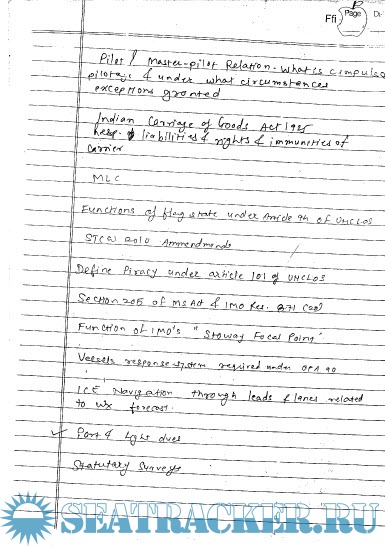 Page
Pilot / Master-pilot Relation. What is compulso
pilotage & under what circumstances
exceptions granted
Indian Carriage of Goods Act 1925
Resp. & liabilities & rights & immunities of
Carrier
MLC
Functions of flag state under Article 94 of UNCLOS
STCW 2010 Ammendmends
Define Piracy under article 101 of UNCLOS
Section 205 of MS Act & IMO Res. 871 (20)
Function of IMO's "Stoway Focal Point"
Vessels response system required under OPA 90
ICE Navigation through leads & lanes related
to wx forecast.
✓ Port & Light dues
Statutary Surveys
SEATRACKER.RU